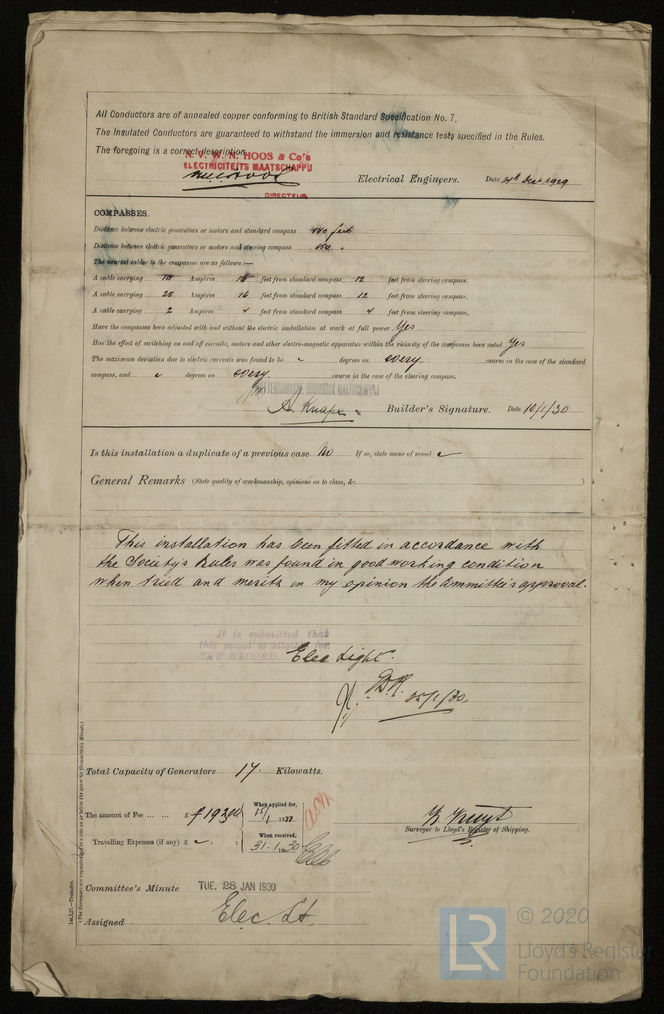 All Conductors are of annealed copper conforming to British Standard Specification No. 7.
The Insulated Conductors are guaranteed to withstand the immersion and resistance tests specified in the Rules.
The foregoing is a correct description.
N. V. W. N. HOOS & Co's
ELECTRICITEITS MAATSCHAPPIJ
Electrical Engineers. Date 1929
DIRECTEUR
COMPASSES.
Distance between electric generators or motors and standard compass feet
Distance between electric generators or motors and steering compass
The nearest cables to the compasses are as follows:—
A cable carrying 10 Ampères feet from standard compass 12 feet from steering compass.
A cable carrying 25 Ampères 16 feet from standard compass 12 feet from steering compass.
A cable carrying 2 Ampères 4 feet from standard compass 4 feet from steering compass.
Have the compasses been adjusted with and without the electric installation at work at full power Yes
Has the effect of switching on and off circuits, motors and other electro-magnetic apparatus within the vicinity of the compasses been noted Yes
The maximum deviation due to electric currents was found to be degrees on every course in the case of the standard
compass, and degrees on every course in the case of the steering compass.
A. Knape Builder's Signature. Date 10/1/30
Is this installation a duplicate of a previous case No If so, state name of vessel
General Remarks (State quality of workmanship, opinions as to class, &c. )
This installation has been fitted in accordance with
the Society's Rules was found in good working condition
when tried and merits in my opinion the Committee's approval.
It is submitted that
this vessel is eligible for
THE RECORD. Elec Light.
25/1/30.
Total Capacity of Generators 17. Kilowatts.
The amount of Fee ... ... £ f193.00
When applied for,
Travelling Expenses (if any) £ : :
When received,
31.1.30
Surveyor to Lloyd's Register of Shipping.
Committee's Minute TUE. 28 JAN 1930
Assigned Elec. Lt.
1m.3.F.—Transfer.
(The Surveyors are requested not to write on or below the space for Committee's Minute.)
LR © 2020
Lloyd's Register
Foundation